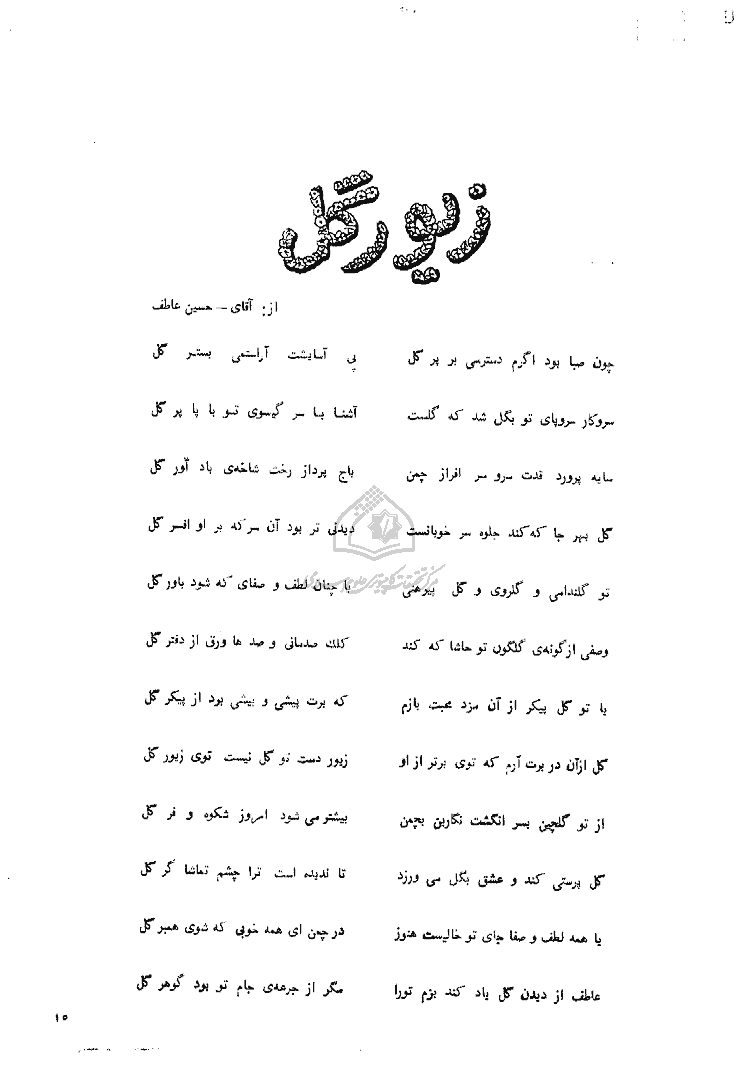 زیور گل
از: آقای – حسین عاطف
چون صبا بود اگرم دسترسی بر پر گل پی آسایشت آراستمی بستر گل
سروکار سروپای تو بگل شد که گلست آشنا با سر گیسوی تو با پا پر گل
سایه پرورد قدت سرو سر افراز چمن باج پرداز رخت شاخه‌ی باد آور گل
گل بهر جا که کند جلوه سر خوبانست دیدنی تر بود آن سر که بر او افسر گل
تو گلندامی و گلروی و گل پیرهنی با چنان لطف و صفای که شود باور گل
وصفی از گونه‌ی گلگون تو حاشا که کند کلك صدمانی و صد ها ورق از دفتر گل
با تو گل پیکر از آن مزد محبت بازم که برت پیشی و بیشی بود از پیکر گل
گل ازآن در برت آرم که توی برتر از او زیور دست تو گل نیست توی زیور گل
از تو گلچین بسر انگشت نگارین بچمن بیشتر می شود امروز شکوه و فر گل
گل پرستی کند و عشق بگل می ورزد تا ندیده است ترا چشم تماشا گر گل
با همه لطف و صفا جای تو خالیست هنوز در چمن ای همه خوبی که شوی همبر گل
عاطف از دیدن گل یاد کند بزم تورا مگر از جرعه‌ی جام تو بود گوهر گل
۱۵